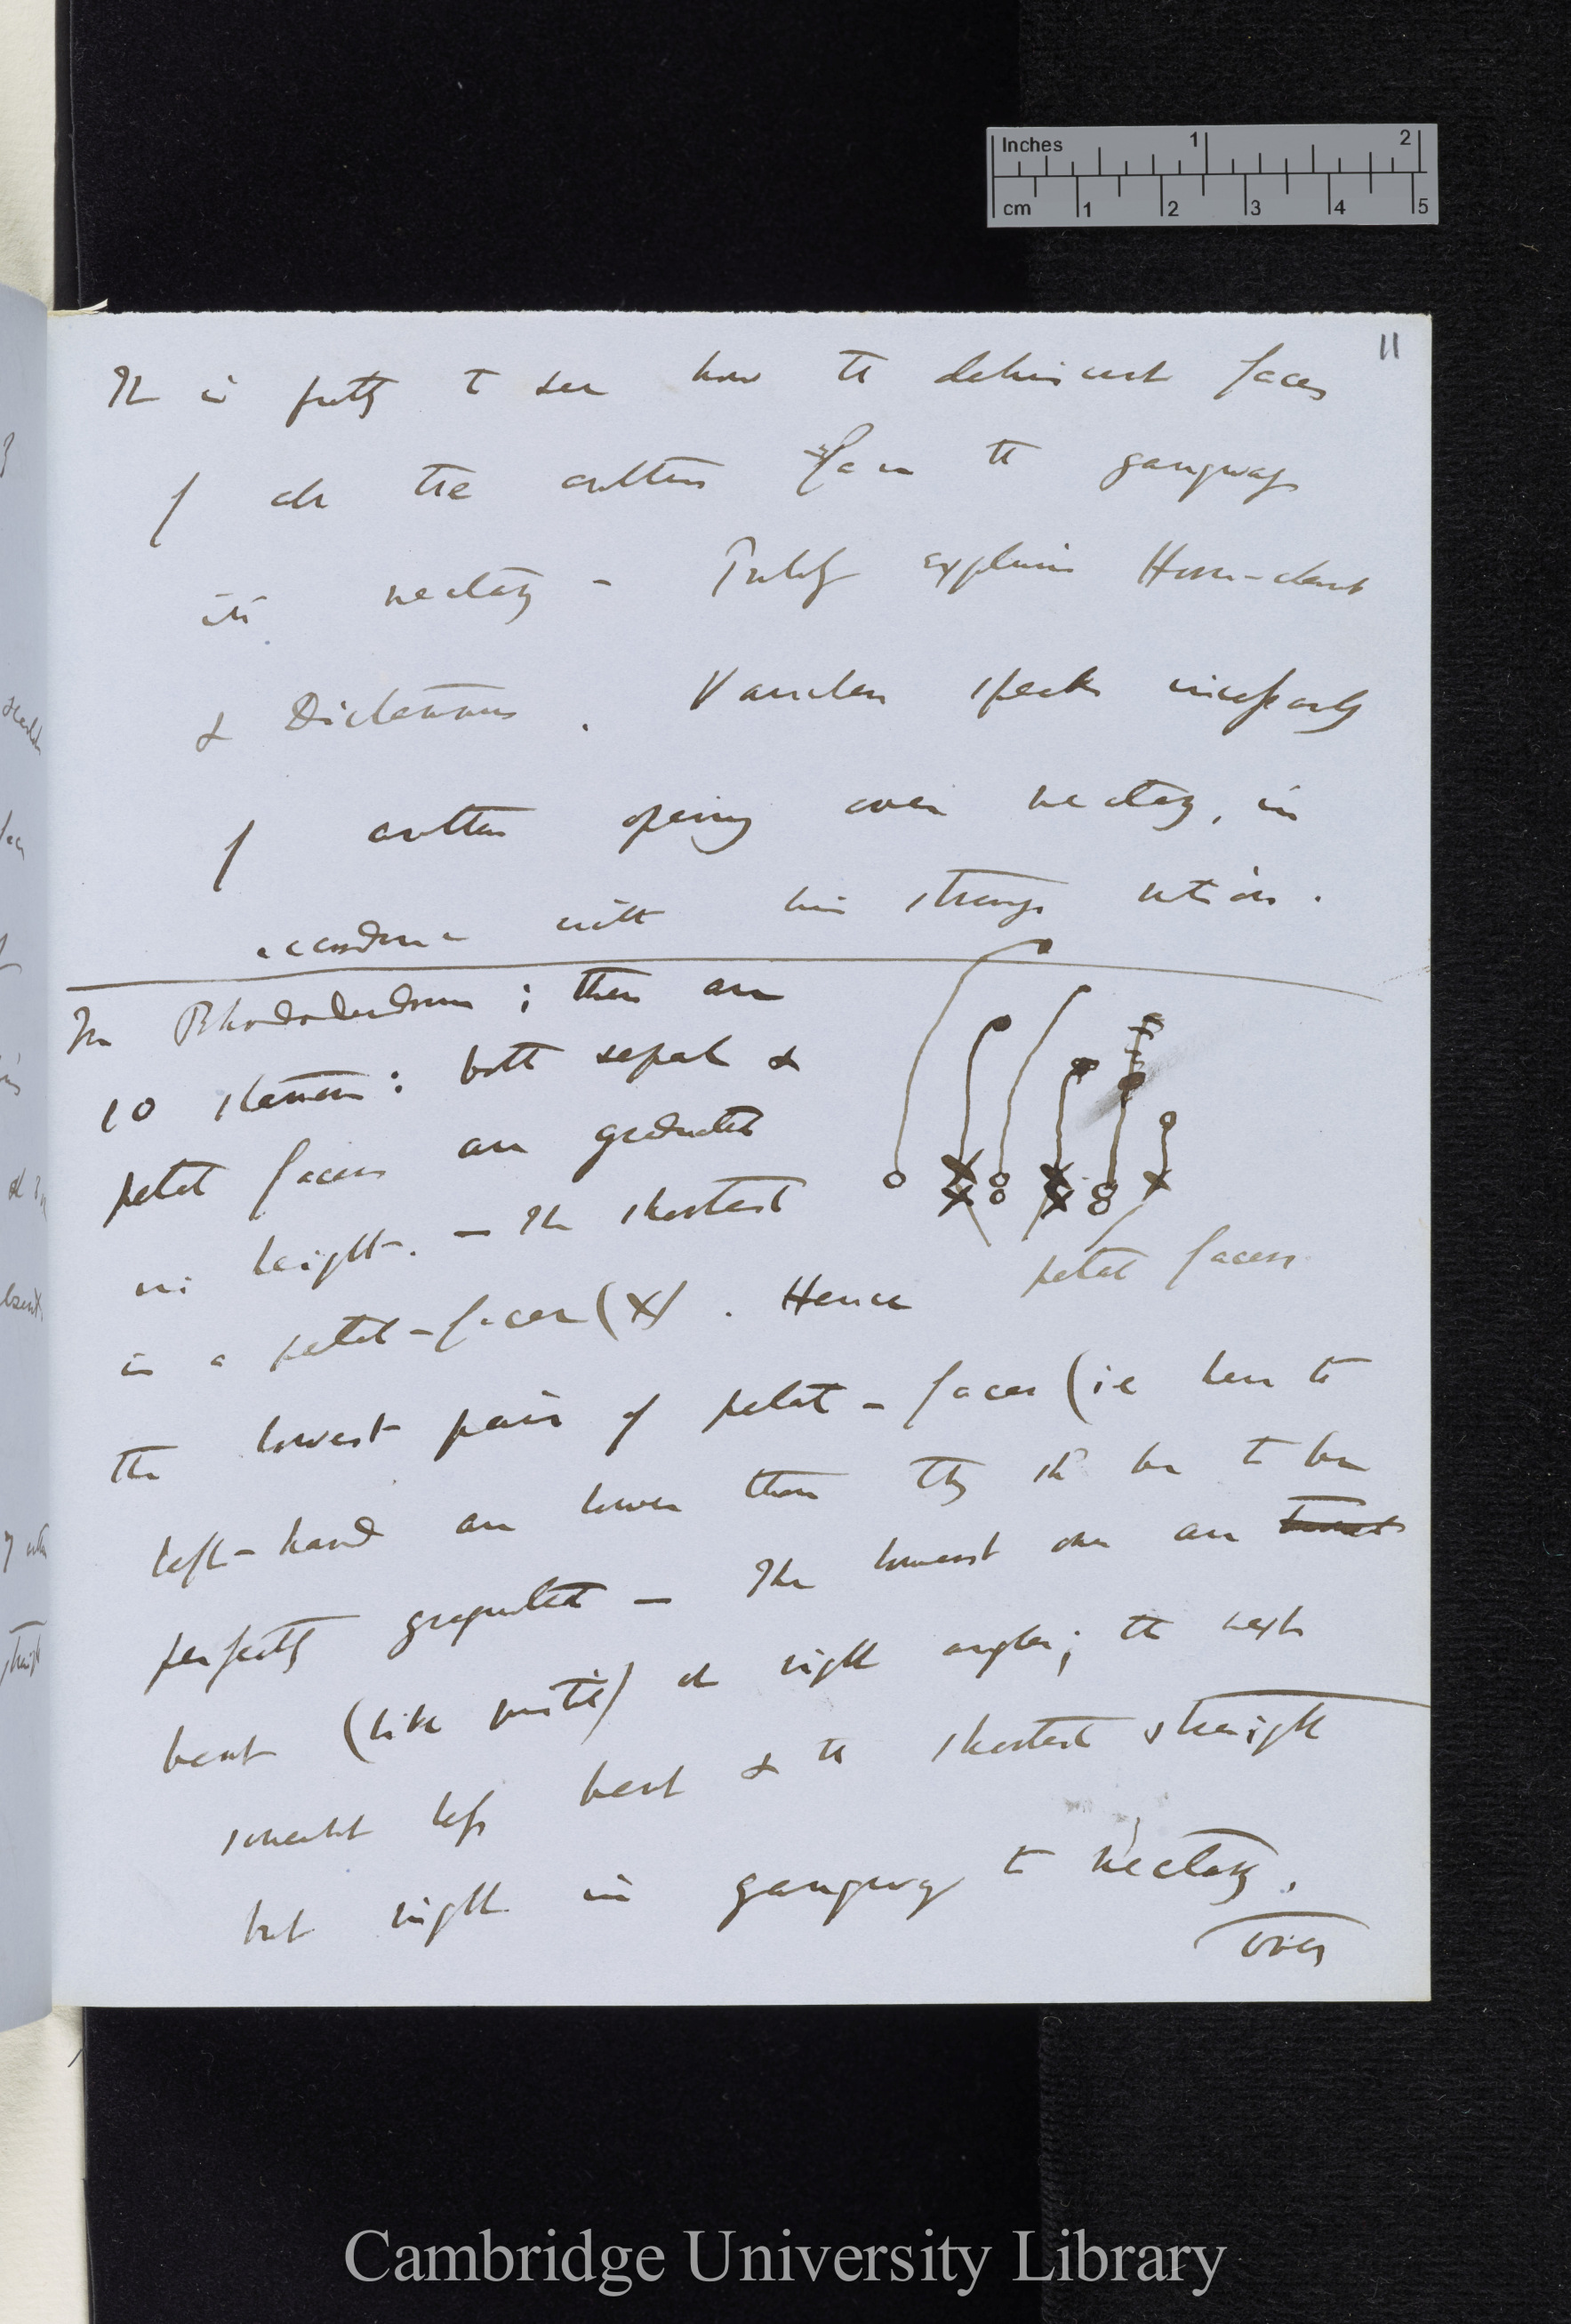 Inches 1 2
cm 1 2 3 4 5
11
It is pretty to see how the dehiscent faces
of all the anthers face the gangway
into nectary — Probably explains Horse-chesnut
& Dictamnus. Vaucher speaks incessantly
of anthers opening over nectary, in
accordance with his strange notions.
In Rhododendron; there are
10 stamens: both sepal &
petal facers are graduated
in height. — The shortest
is a petal-facer (X). Hence
petal facers
the lowest pair of petal-facer (ie here to
left-hand are lower than they shd be to be
perfectly graduated — The lowest one are
bent (like pistil) at right angles; the next
somewhat less bent & the shortest straight
but right in gangway to nectary.
over
Cambridge University Library